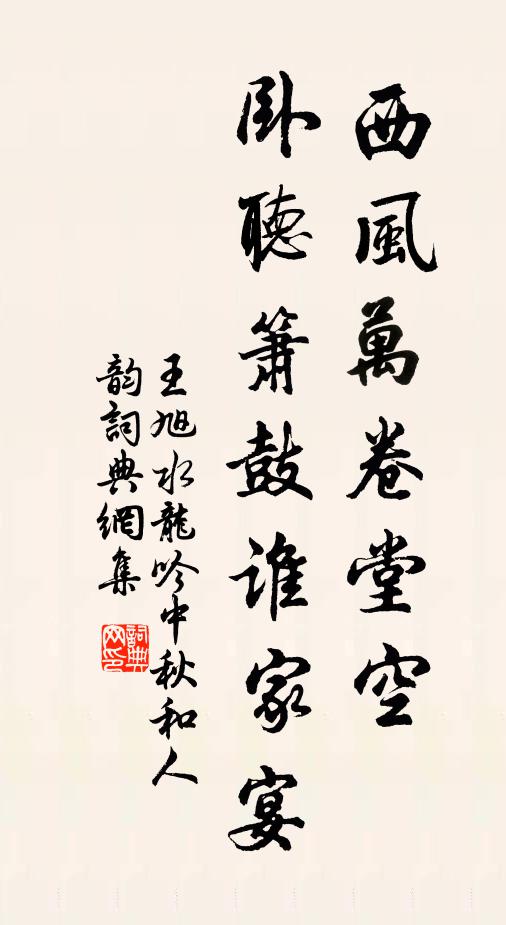 西風萬卷堂空
卧聽簫鼓誰家宴
王旭水龍吟中秋和人
韵詞典網集
詞典網印